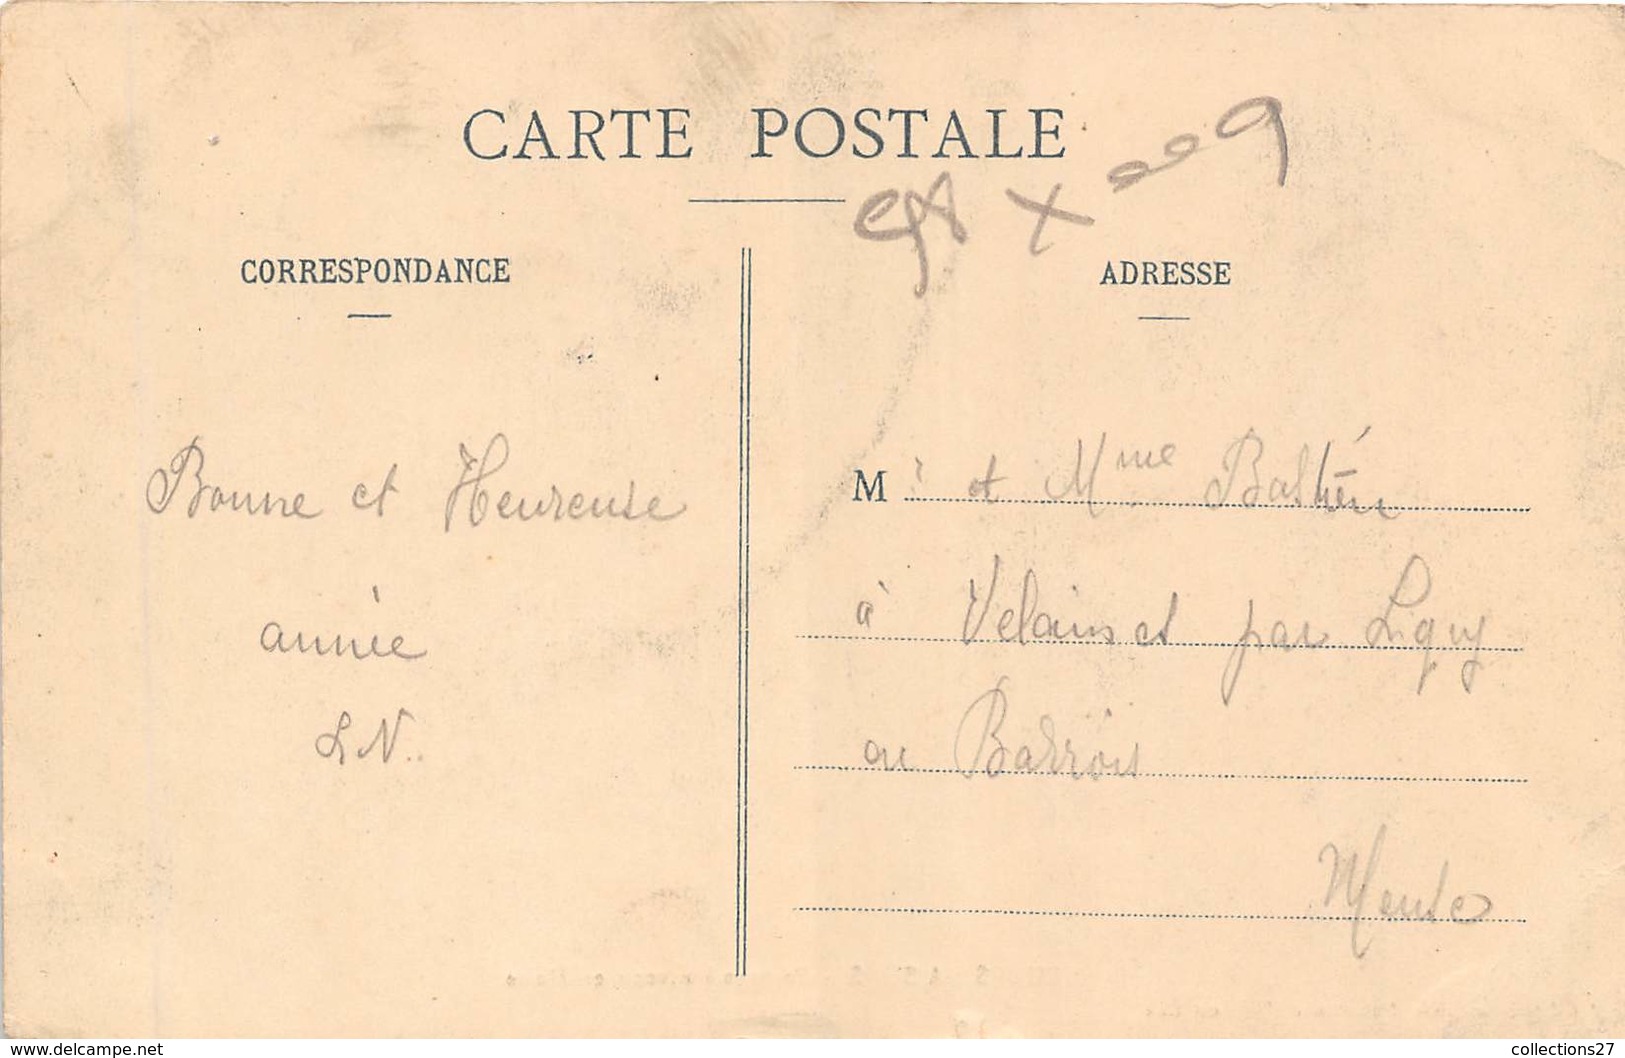 CARTE POSTALE
CORRESPONDANCE
Bonne et Heureuse
année
L N..
ADRESSE
M r et Mme
à Velaines et par Ligny
en Barrois
Meuse
www.delcampe.net
collections27